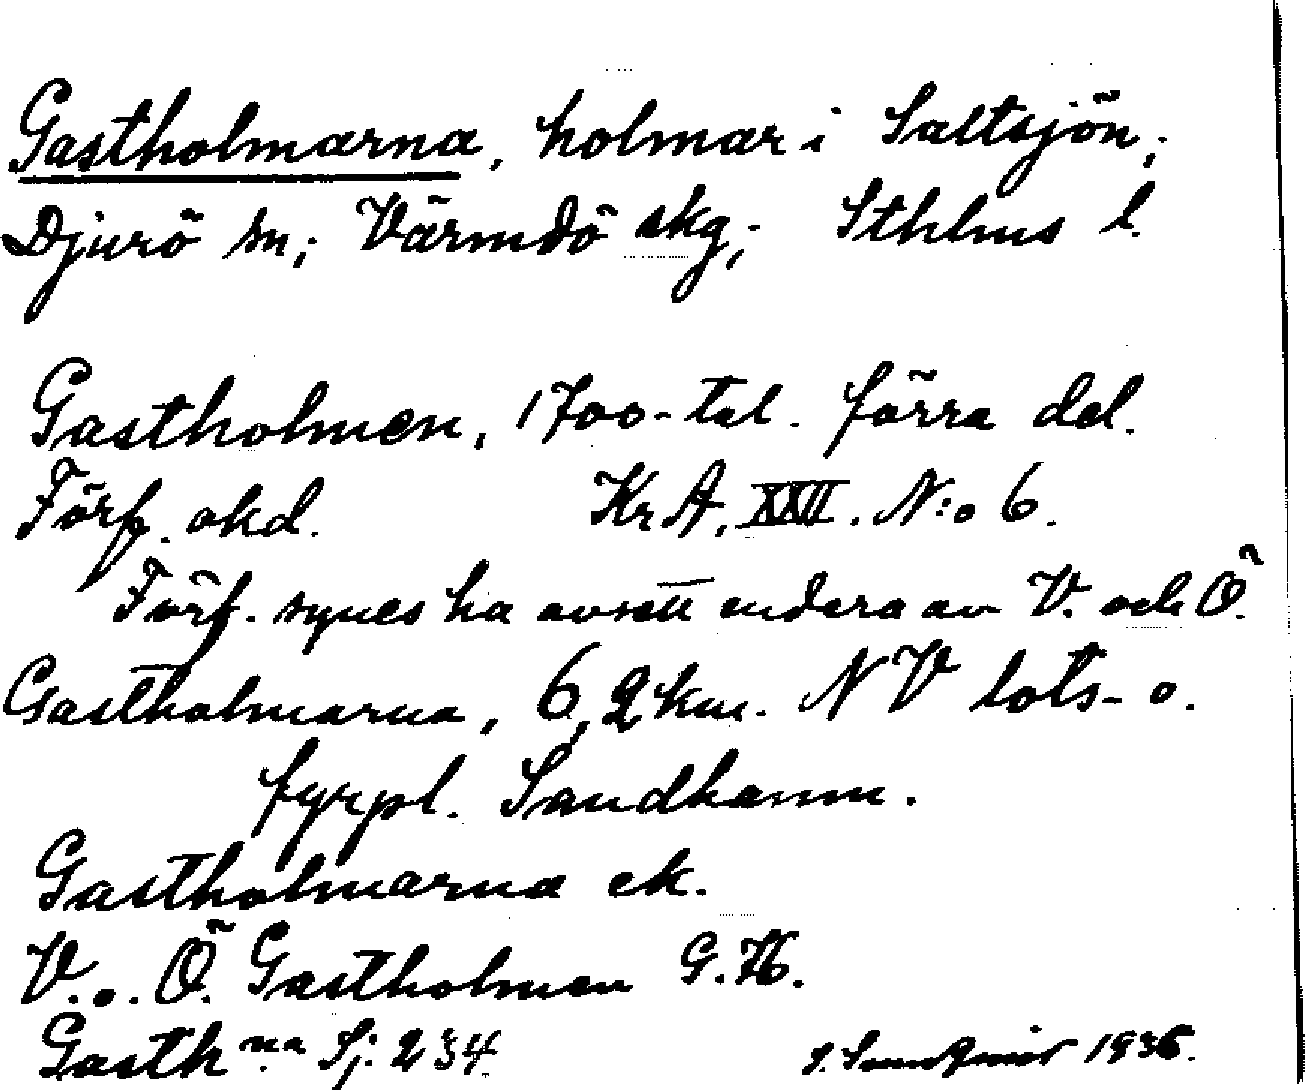 Gastholmarna, holmar i Saltsjön;
Djurö sn; Värmdö skg; Sthlms l.
Gastholmen, 1700-tal. förra del.
Förf. okd. Kr A, XXII. N:o 6.
Förf. synes ha avsett endera av V. och Ö.
Gastholmarna, 6,2 km. NV lots- o.
fyrpl. Sandhamn.
Gastholmarna ek.
V. o. Ö. Gastholmen G.K.
Gasth:na Sj. 234 1936.